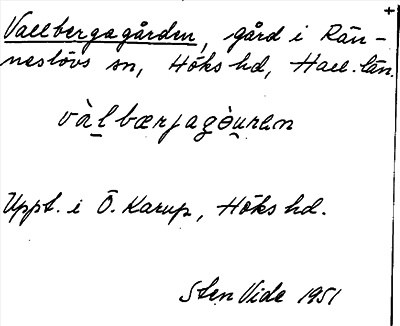 Vallbergagården, gård i Rän-
neslövs sn, Höks hd, Hall. län.
vàlbærjagòu̯ran
Uppt. i Ö. Karup, Höks hd.
Sten Vide 1951